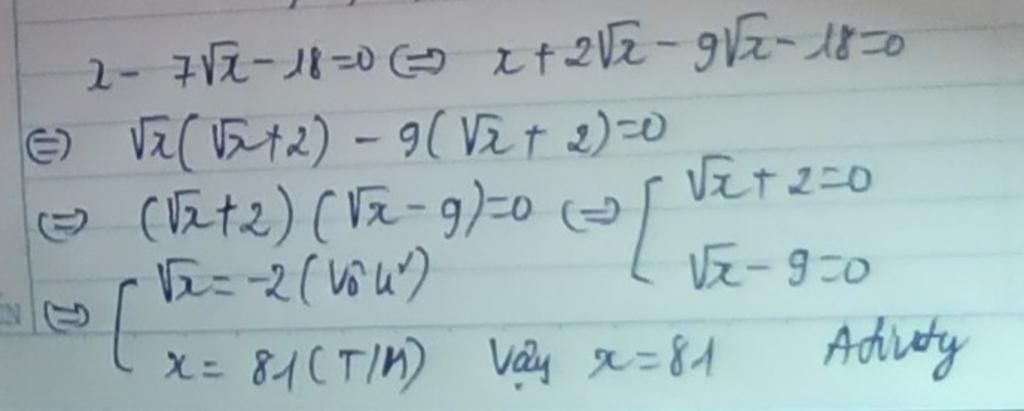 x - 7√x - 18 = 0 ⇔ x + 2√x - 9√x - 18 = 0
⇔ √x(√x + 2) - 9(√x + 2) = 0
⇔ (√x + 2)(√x - 9) = 0 ⇔ [ √x + 2 = 0
√x - 9 = 0
⇔ [ √x = -2 (Vô lí)
x = 81 (T/M) Vậy x = 81